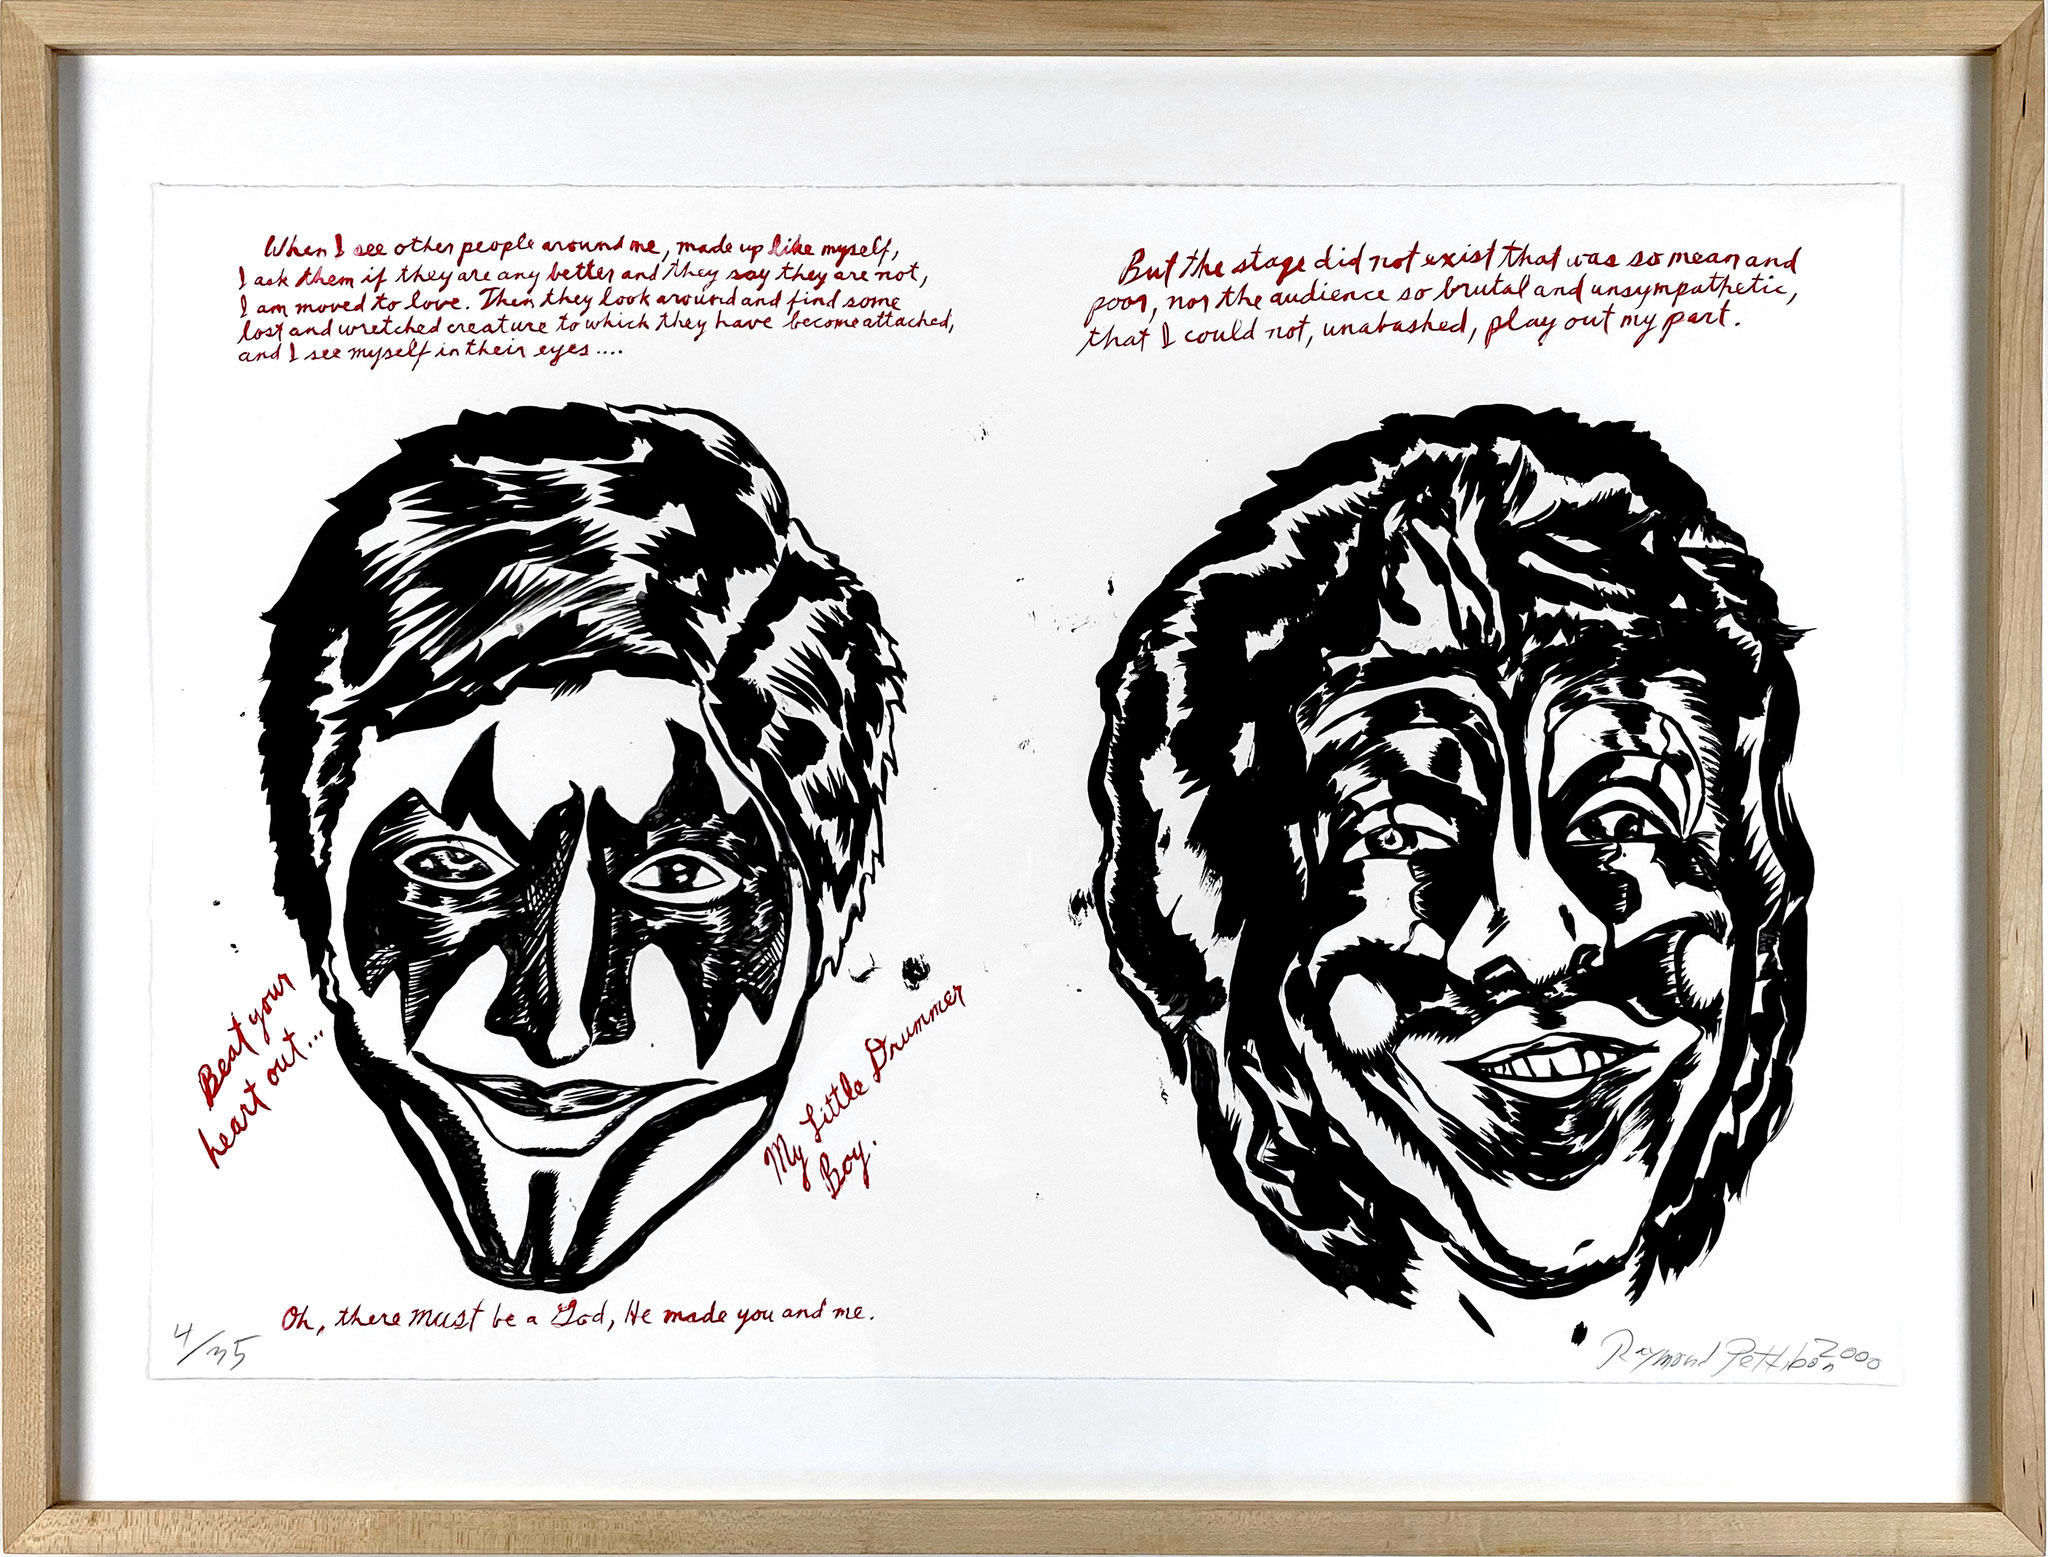 When I see other people around me, made up like myself,
I ask them if they are any better and they say they are not,
I am moved to love. Then they look around and find some
lost and wretched creature to which they have become attached,
and I see myself in their eyes....
But the stage did not exist that was so mean and
poor, nor the audience so brutal and unsympathetic,
that I could not, unabashed, play out my part.
Beat your
heart out...
My Little Drummer
Boy.
Oh, there must be a God, He made you and me.
4/35
Raymond Pettibon 2000